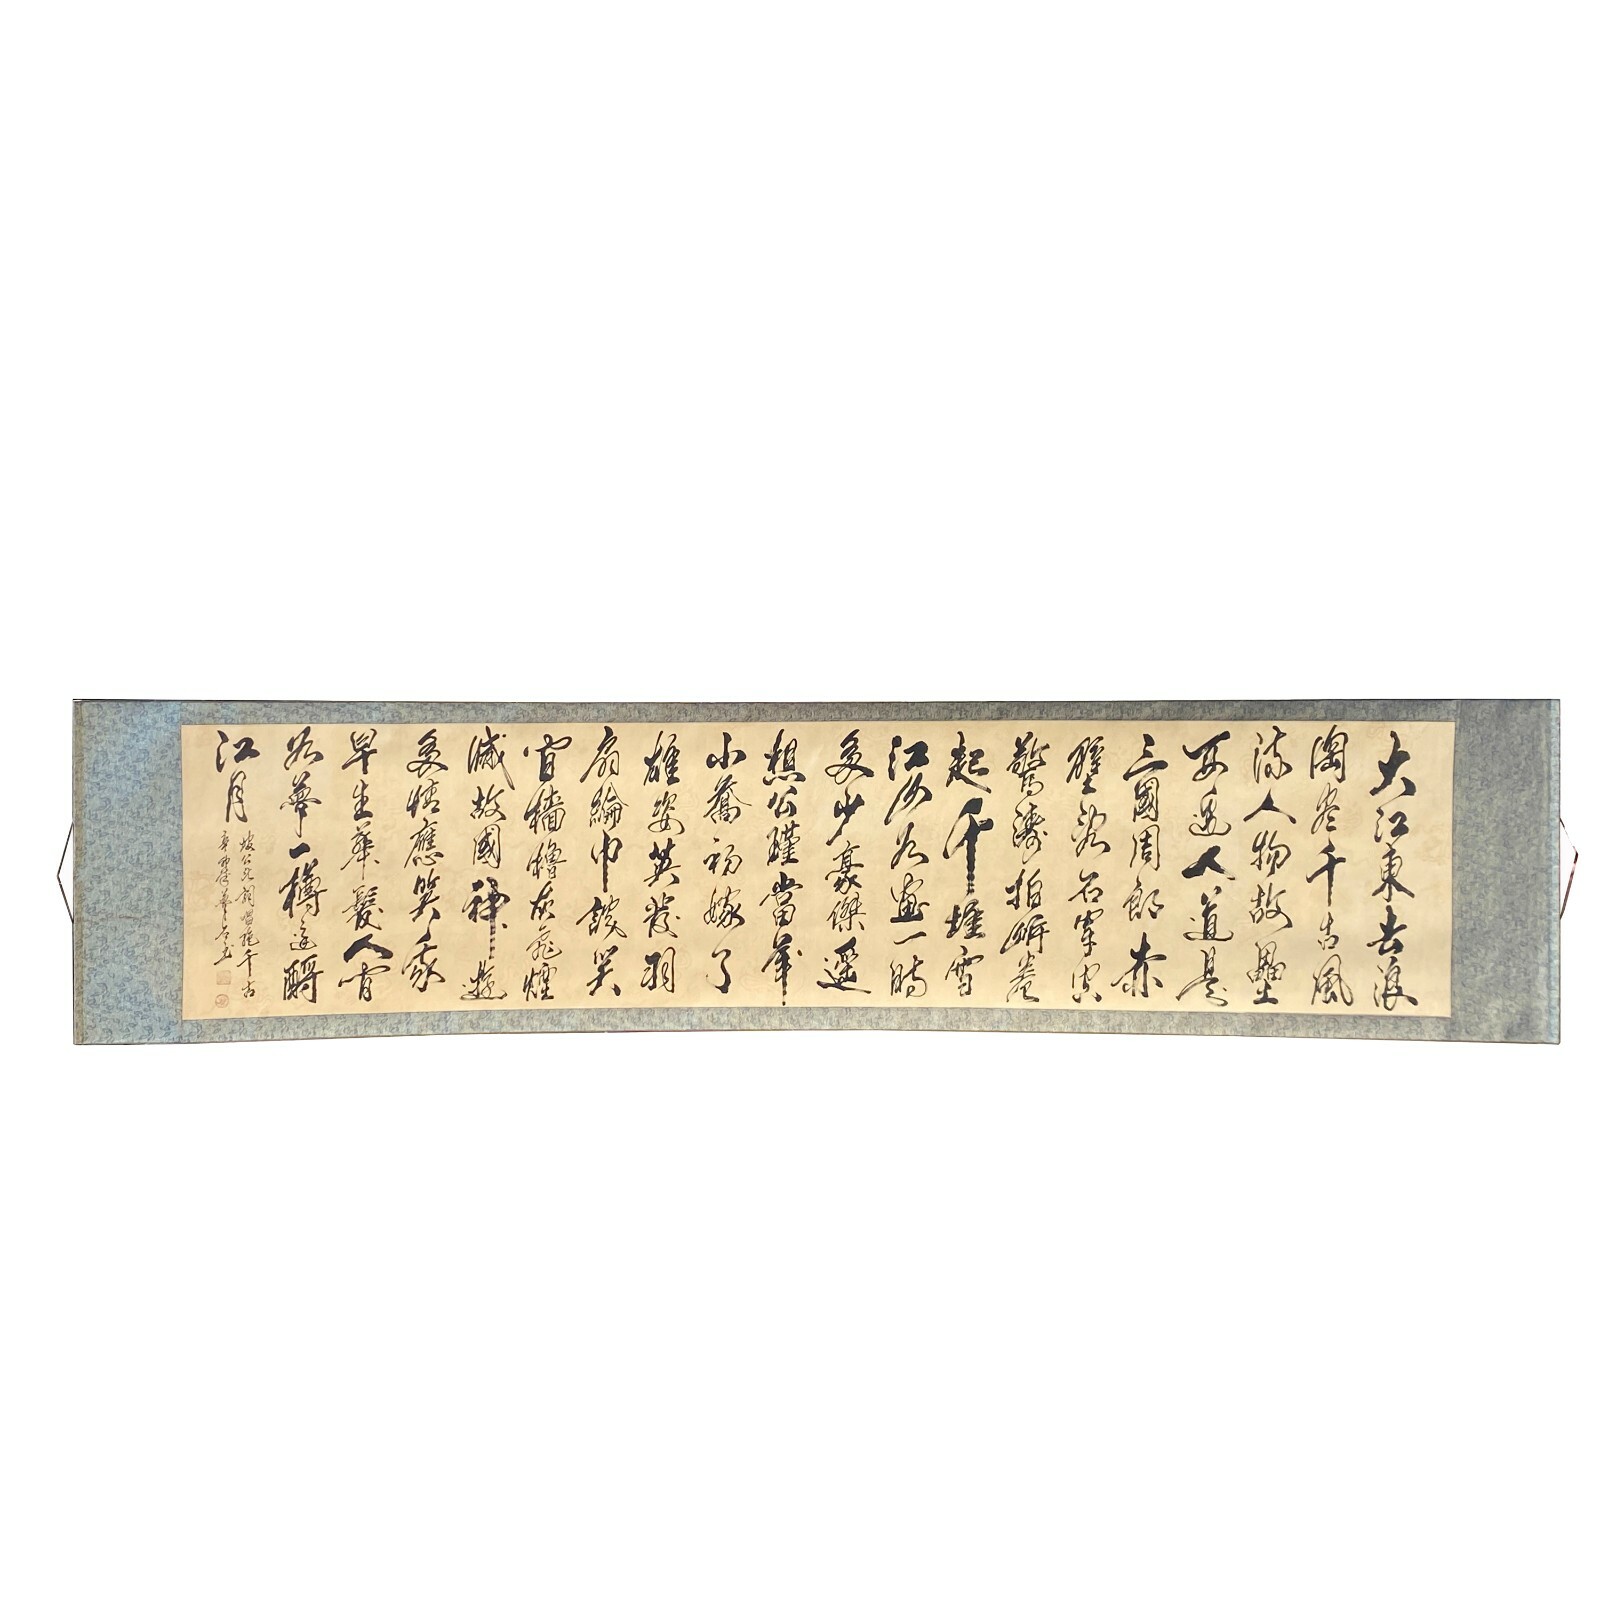 大江東去浪
淘盡千古風
流人物故壘
西邊人道是
三國周郎赤
壁亂石穿空
驚濤拍岸卷
起千堆雪
江山如畫一時
多少豪傑遥
想公瑾當年
小喬初嫁了
雄姿英發羽
扇綸巾談笑
間檣櫓灰飛煙
滅故國神遊
多情應笑我
早生華髮人間
如夢一樽還酹
江月
坡公此詞唱絕千古
辛酉